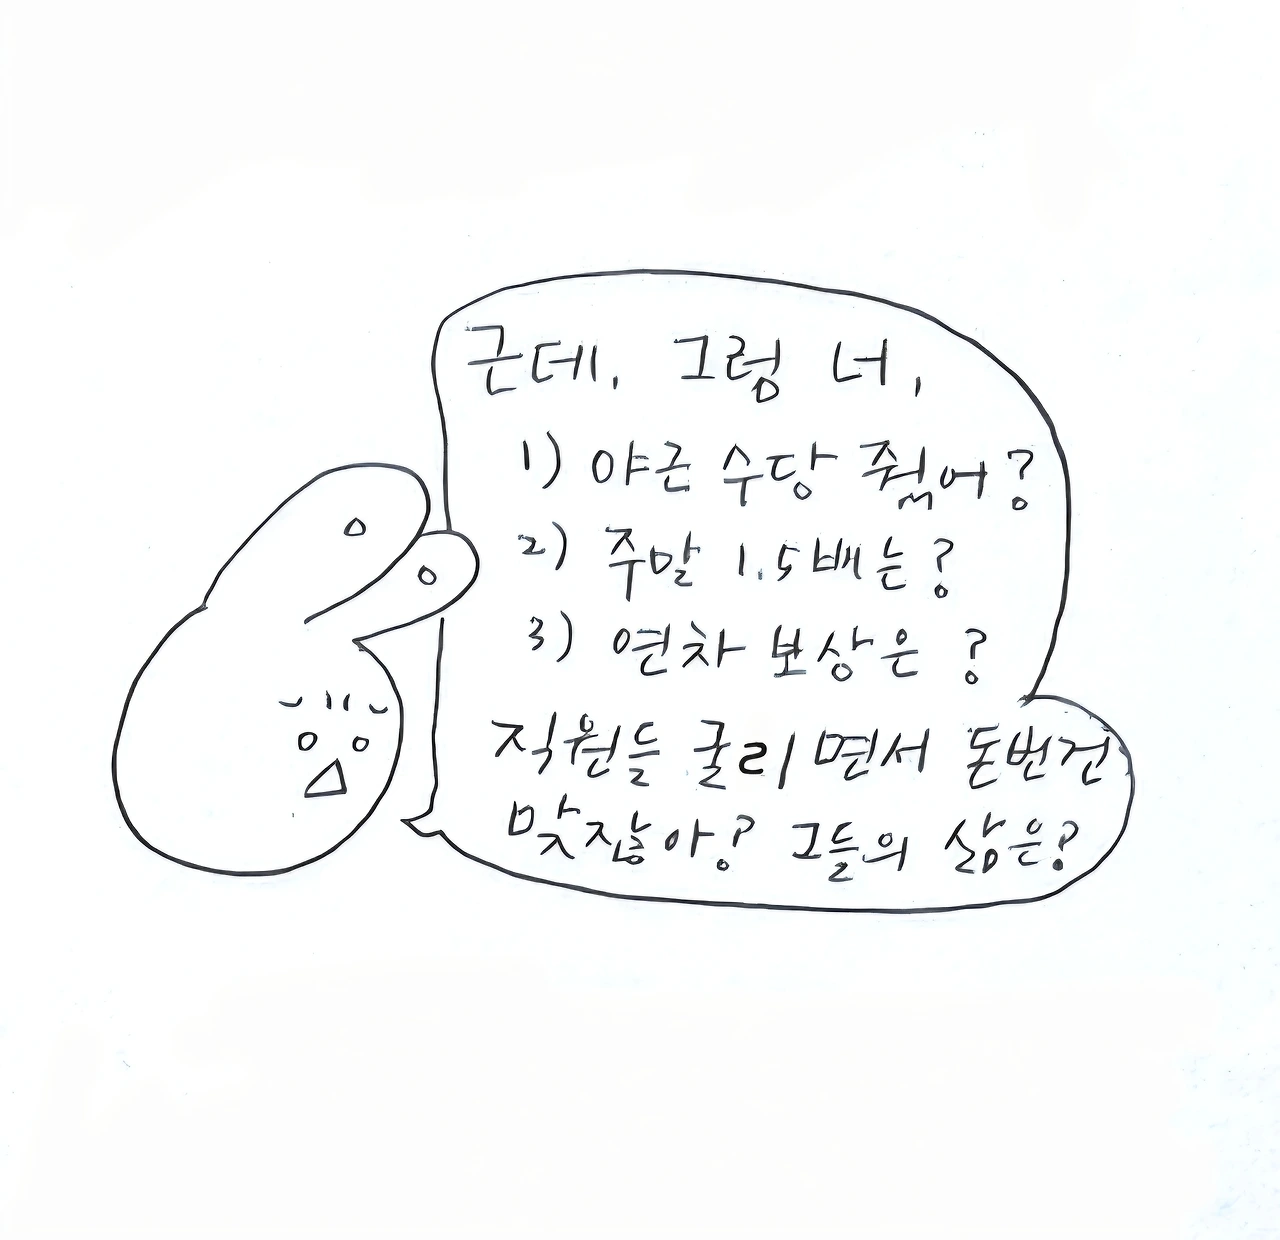 근데, 그럼 너,
1) 야근 수당 줬어?
2) 주말 1.5배는?
3) 연차 보상은 ?
직원들 굴리면서 돈번건
맞잖아? 그들의 삶은?